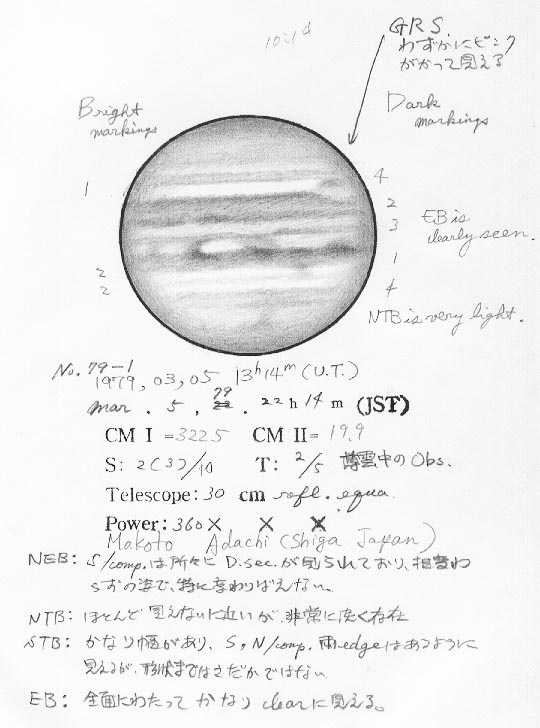 10:1d
GRS.
わずかにピンク
がかって見える
Bright
markings
Dark
markings
1
2
2
4
2
3
1
4
EB is
clearly seen.
NTB is very light.
No. 79-1
1979, 03, 05 13h14m (U.T.)
mar. 5, 79 . 22h 14m (JST)
CM I =322.5 CM II= 19.9
S: 2(3)/10 T: 2/5 薄雲中のObs.
Telescope: 30 cm refl. equa.
Power: 360× × ×
Makoto Adachi (Shiga Japan)
NEB: S/comp.は所々にD.sec.が見られており、相変わ
らずの姿で、特に変わりばえない。
NTB: ほとんど見えないに近いが、非常に淡く存在
STB: かなり幅があり、S,N/comp. 両edgeはあるように
見えるが、形状まではさだかではない。
EB: 全面にわたってかなりclearに見える。